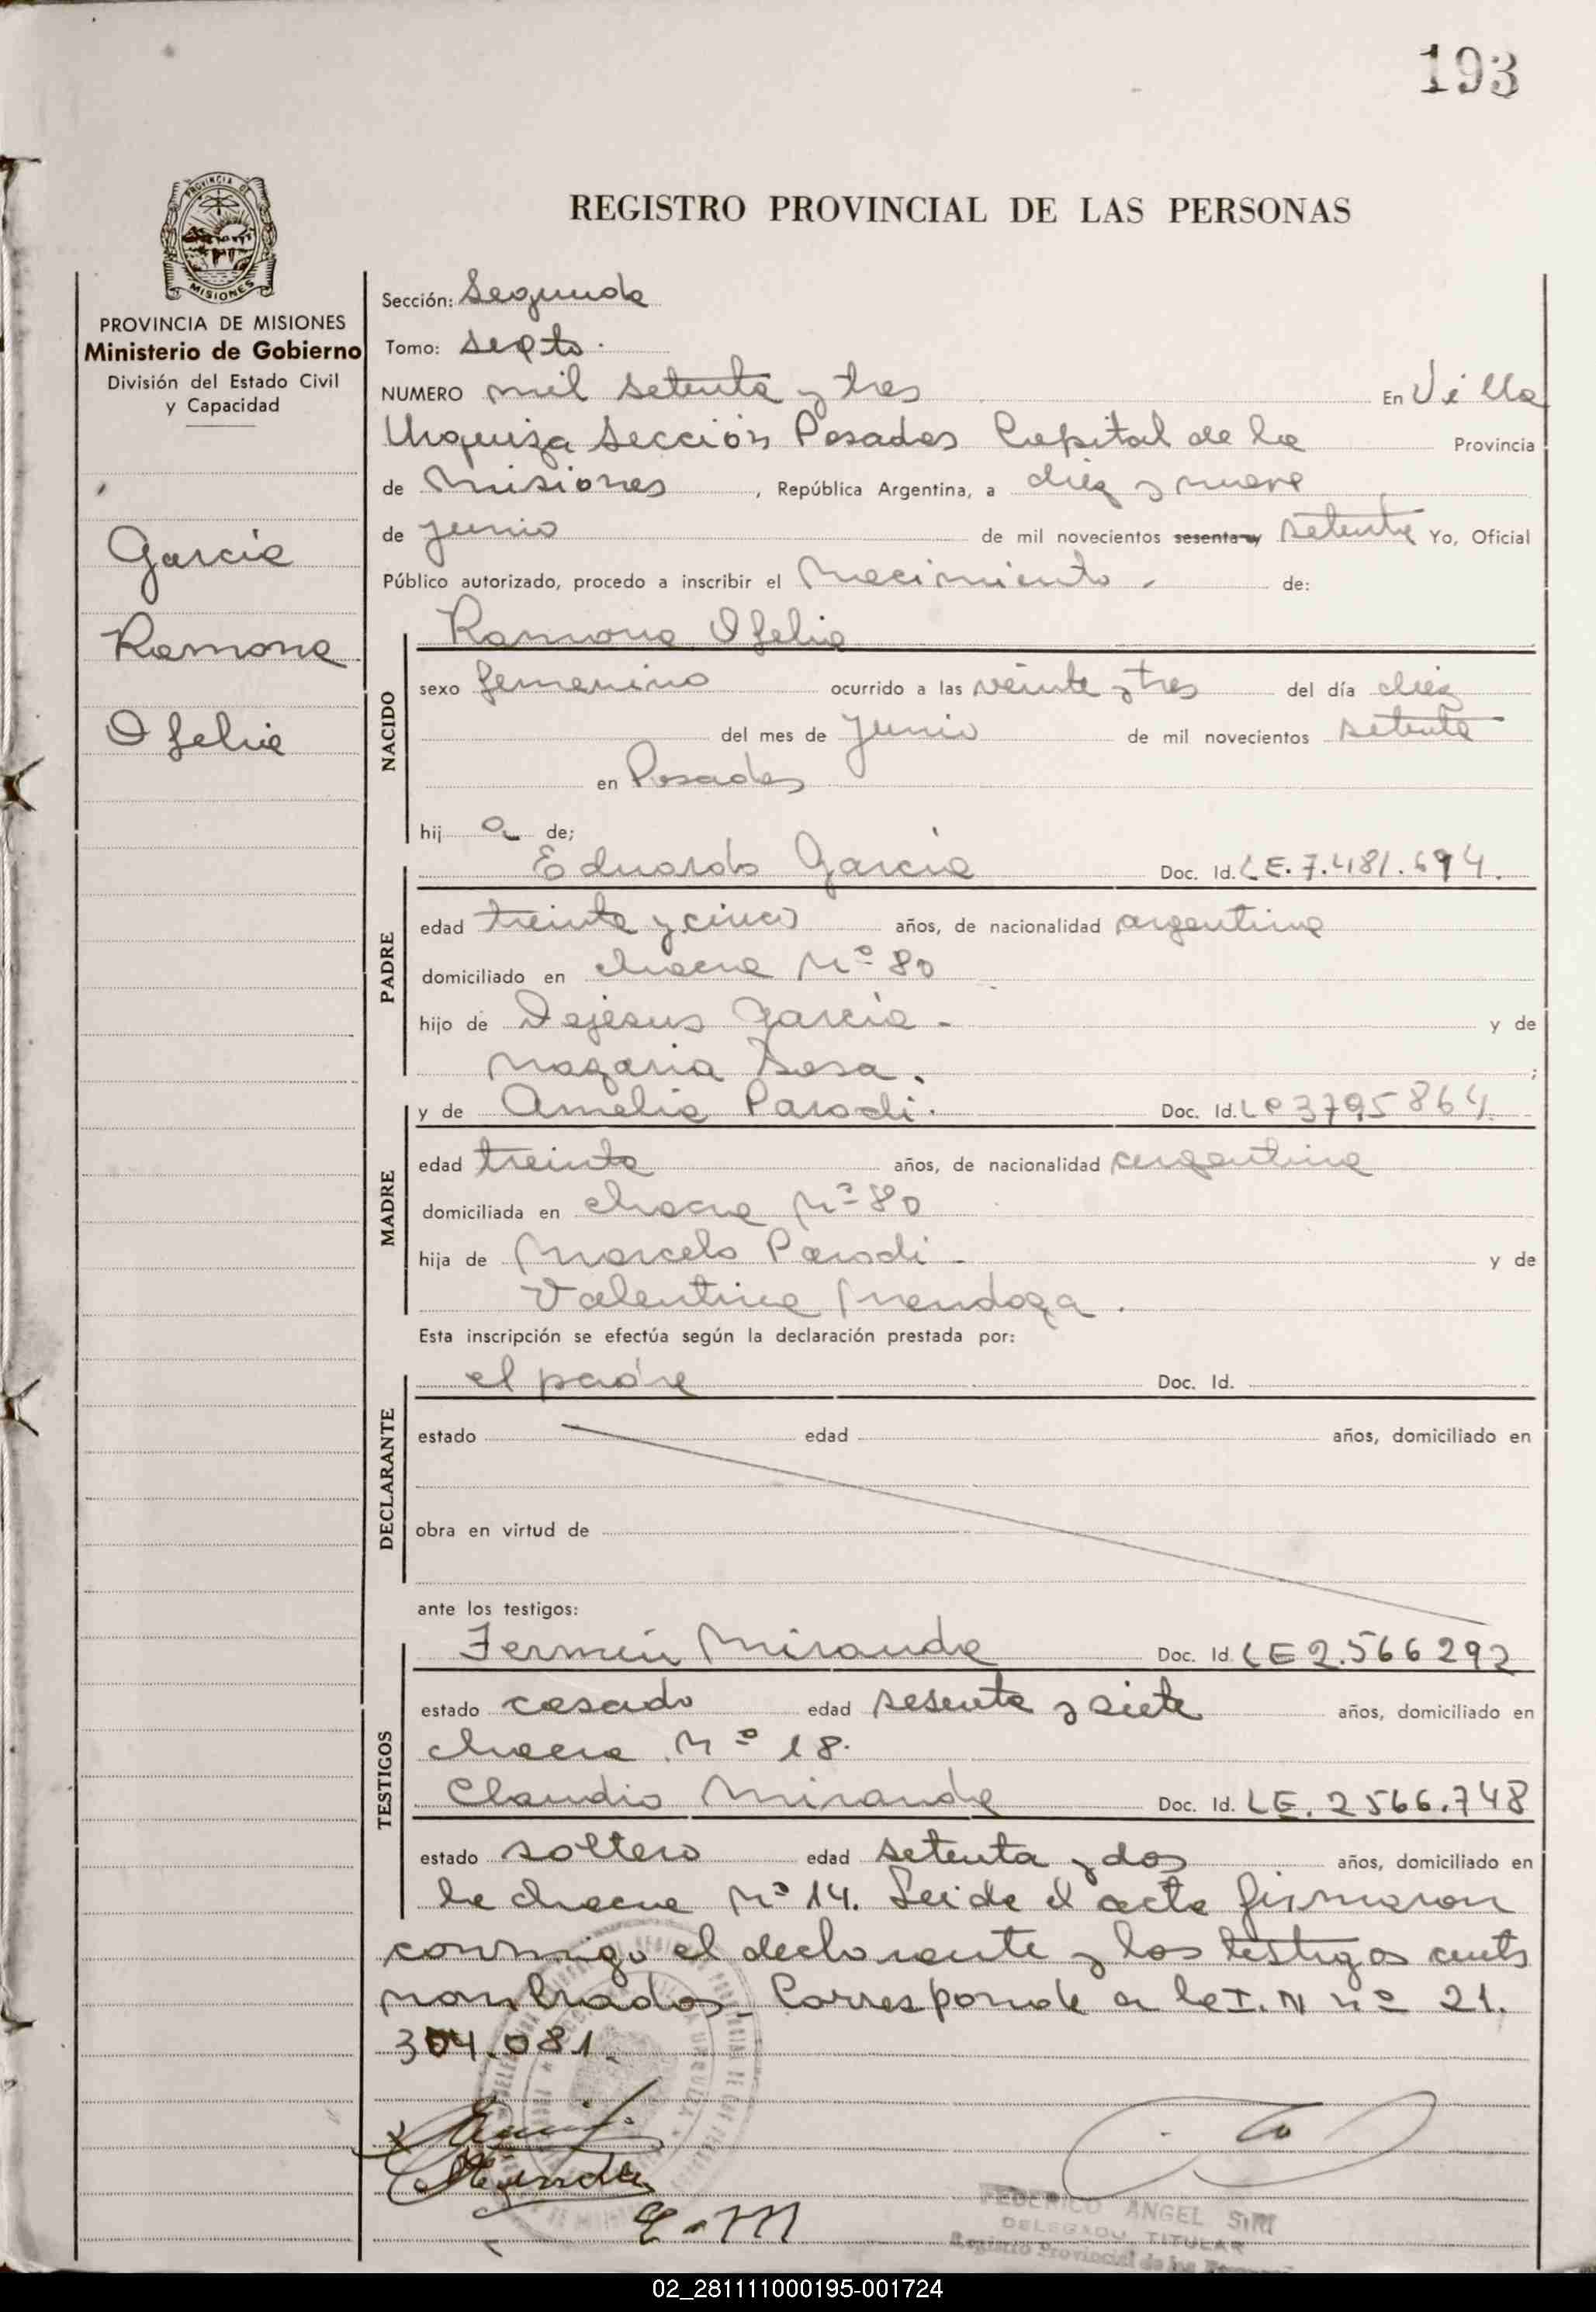 193
PROVINCIA DE
MISIONES
REGISTRO PROVINCIAL DE LAS PERSONAS
PROVINCIA DE MISIONES
Ministerio de Gobierno
División del Estado Civil
y Capacidad
García
Ramona
Ofelia
Sección: Segunda
Tomo: septo.
NUMERO mil setenta y tres En Villa
Urquiza Sección Posadas Capital de la Provincia
de Misiones, República Argentina, a diez y nueve
de junio de mil novecientos sesenta y setenta Yo, Oficial
Público autorizado, procedo a inscribir el Nacimiento - de:
NACIDO
Ramona Ofelia
sexo femenino ocurrido a las veinte y tres del día diez
del mes de Junio de mil novecientos setenta
en Posadas
hij a de;
PADRE
Eduardo García Doc. Id. LE. 7.481.694.
edad treinta y cinco años, de nacionalidad argentina
domiciliado en chacra Nº 80
hijo de Dejesus García - y de
Nazaria Sosa. ;
MADRE
y de Amelia Parodi. Doc. Id. LC 3795864
edad treinta años, de nacionalidad argentina
domiciliada en chacra Nº 80
hija de Marcelo Parodi - y de
Valentina Mendoza.
Esta inscripción se efectúa según la declaración prestada por:
DECLARANTE
el padre Doc. Id.
estado edad años, domiciliado en
obra en virtud de
ante los testigos:
TESTIGOS
Fermín Miranda Doc. Id. LE 2.566292
estado casado edad sesenta y siete años, domiciliado en
chacra Nº 18.
Claudio Miranda Doc. Id. LE. 2566.748
estado soltero edad setenta y dos años, domiciliado en
la chacra Nº 14. Leida el acta firmaron
conmigo el declarante y los testigos ants
nombrados. Corresponde a la I. N nº 21.
304.081.
E. M
FEDERICO ANGEL SIRI
DELEGADO TITULAR
Registro Provincial de las
02_281111000195-001724